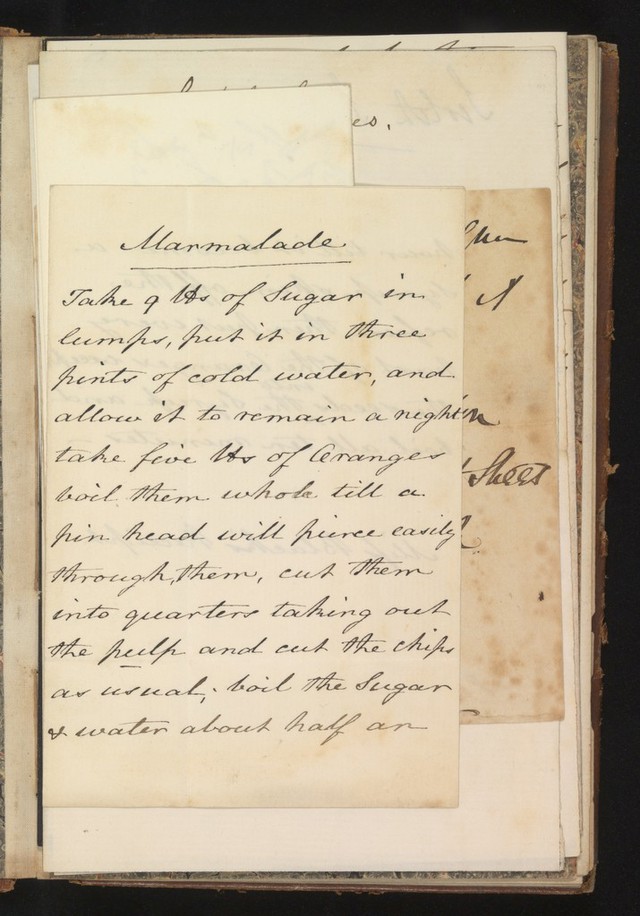 es.
Marmalade
Take 9 lbs of Sugar in
lumps, put it in three
pints of cold water, and
allow it to remain a night
take five lbs of Oranges
boil them whole till a
pin head will pierce easily
through, them, cut them
into quarters taking out
the pulp and cut the chips
as usual; boil the Sugar
& water about half an
Sheet